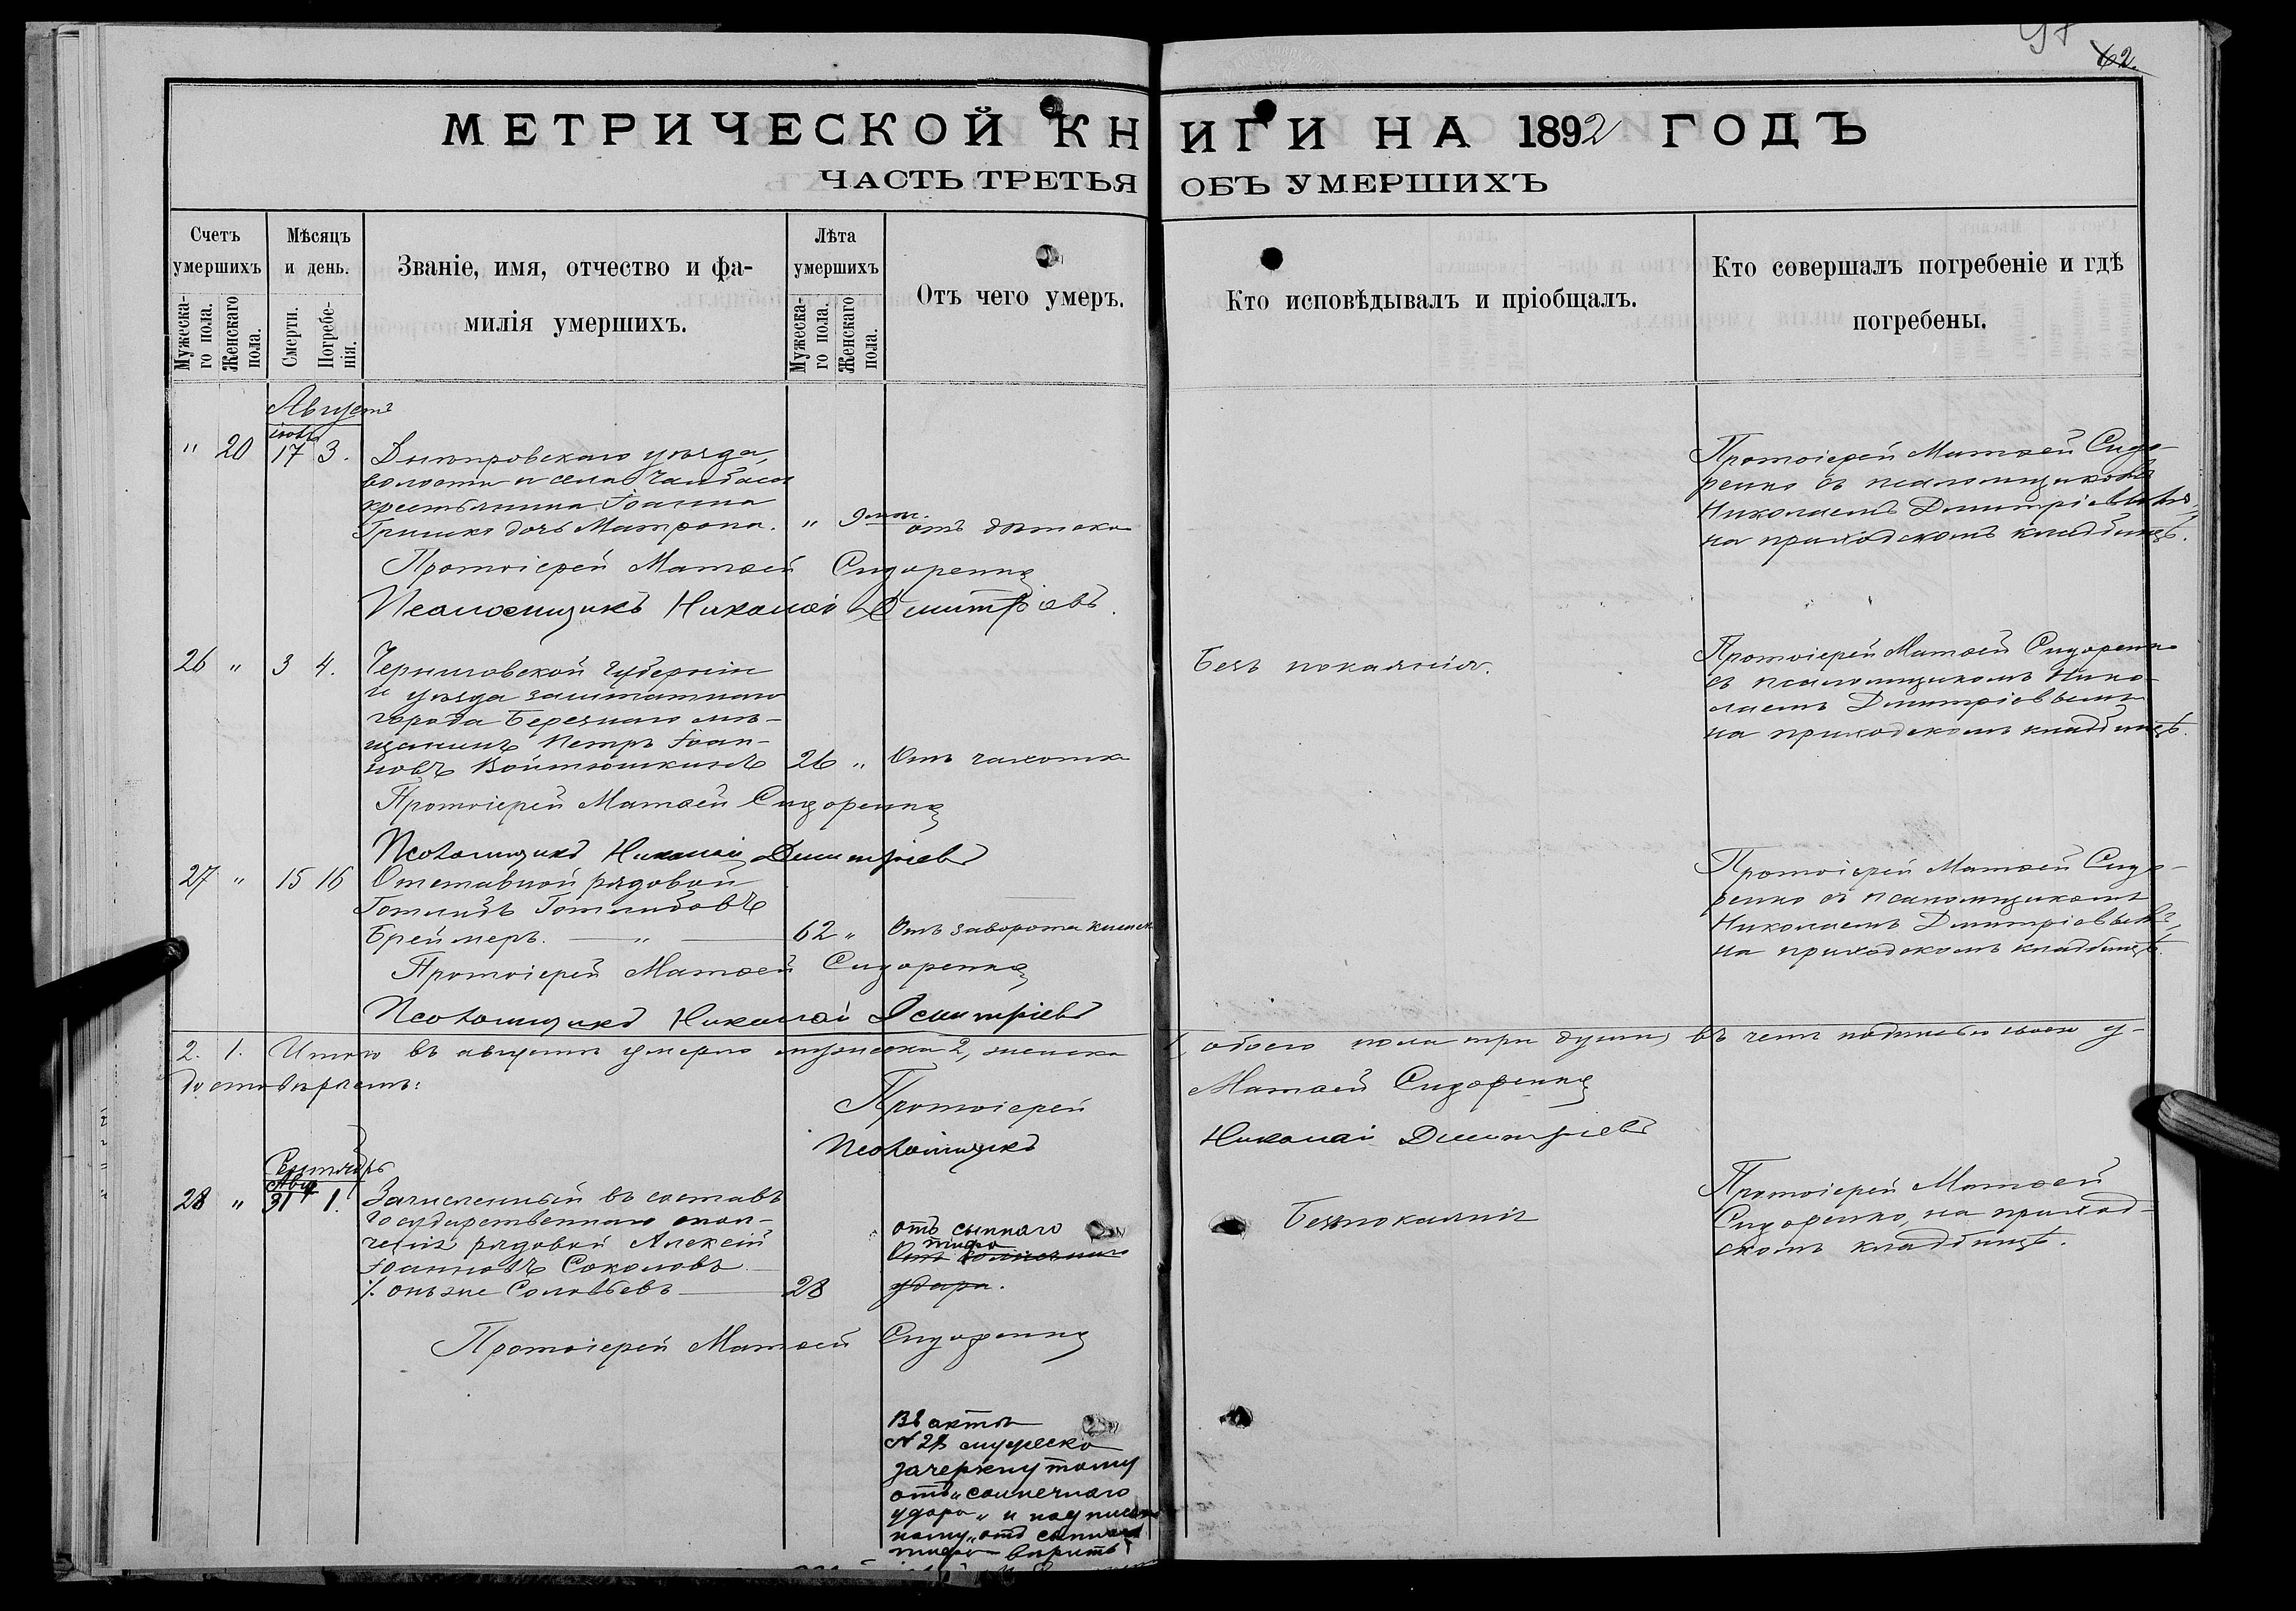 62.
МЕТРИЧЕСКОЙ КНИГИ НА 1892 ГОДЪ
ЧАСТЬ ТРЕТЬЯ ОБЪ УМЕРШИХЪ
Счетъ умершихъ
Мужеска-го пола.
Женскаго пола.
Мѣсяцъ и день.
Смерти.
Погребе-нія.
Званіе, имя, отчество и фа-
милія умершихъ.
Лѣта умершихъ
Мужеска-го пола.
Женскаго пола.
Отъ чего умеръ.
Кто исповѣдывалъ и пріобщалъ.
Кто совершалъ погребеніе и гдѣ
погребены.
Августъ
" 20 17 3.
Днѣпровскаго уѣзда,
волости и села Чалбасы
крестьянина Іоанна
Гришко дочь Матрона. " 9 мѣс.
Протоіерей Матѳей Сидо-
ренко съ псаломщикомъ
Николаемъ Дмитріевымъ,
на приходскомъ кладбищѣ.
Протоіерей Матѳей Сидоренко
Псаломщикъ Николай Дмитріевъ.
26 " 3 4.
Черниговской губерніи
и уѣзда заштатнаго
города Березнаго мѣ-
щанинъ Петръ Іоан-
новъ Войтюшкинъ 26 " Отъ чахотки
Безъ покаянія.
Протоіерей Матѳей Сидоренко
съ псаломщикомъ Нико-
лаемъ Дмитріевымъ
на приходскомъ кладбищѣ.
Протоіерей Матѳей Сидоренко
Псаломщикъ Николай Дмитріевъ
27 " 15 16
Отставной рядовой
Готлибъ Готлибовъ
Бреймеръ. — " — 62 " Отъ заворота кишек
Протоіерей Матѳей Сидо-
ренко съ псаломщикомъ
Николаемъ Дмитріевымъ,
на приходскомъ кладбищѣ.
Протоіерей Матѳей Сидоренко
Псаломщикъ Николай Дмитріевъ
2. 1. Итого въ августѣ умерло мужеска 2, женска 1, обоего пола три души, въ чемъ подписью своею у-
достовѣряемъ:
Протоіерей Матѳей Сидоренко
Псаломщикъ Николай Дмитріевъ
Сентябрь
Авг.
28 " 31 1.
Зачисленный въ составъ
государственнаго опол-
ченія рядовой Алексій
Іоанновъ Соколовъ
онъ же Соловьевъ — 28
отъ сыпного
тифа
Отъ солнечнаго
удара.
Безъ покаянія
Протоіерей Матѳей
Сидоренко, на приход-
скомъ кладбищѣ.
Протоіерей Матѳей Сидоренко
Въ актѣ
N 28 мужеска
зачеркнутому
отъ "солнечнаго
удара" и надписан
ному "отъ сыпного
тифа" вѣрить